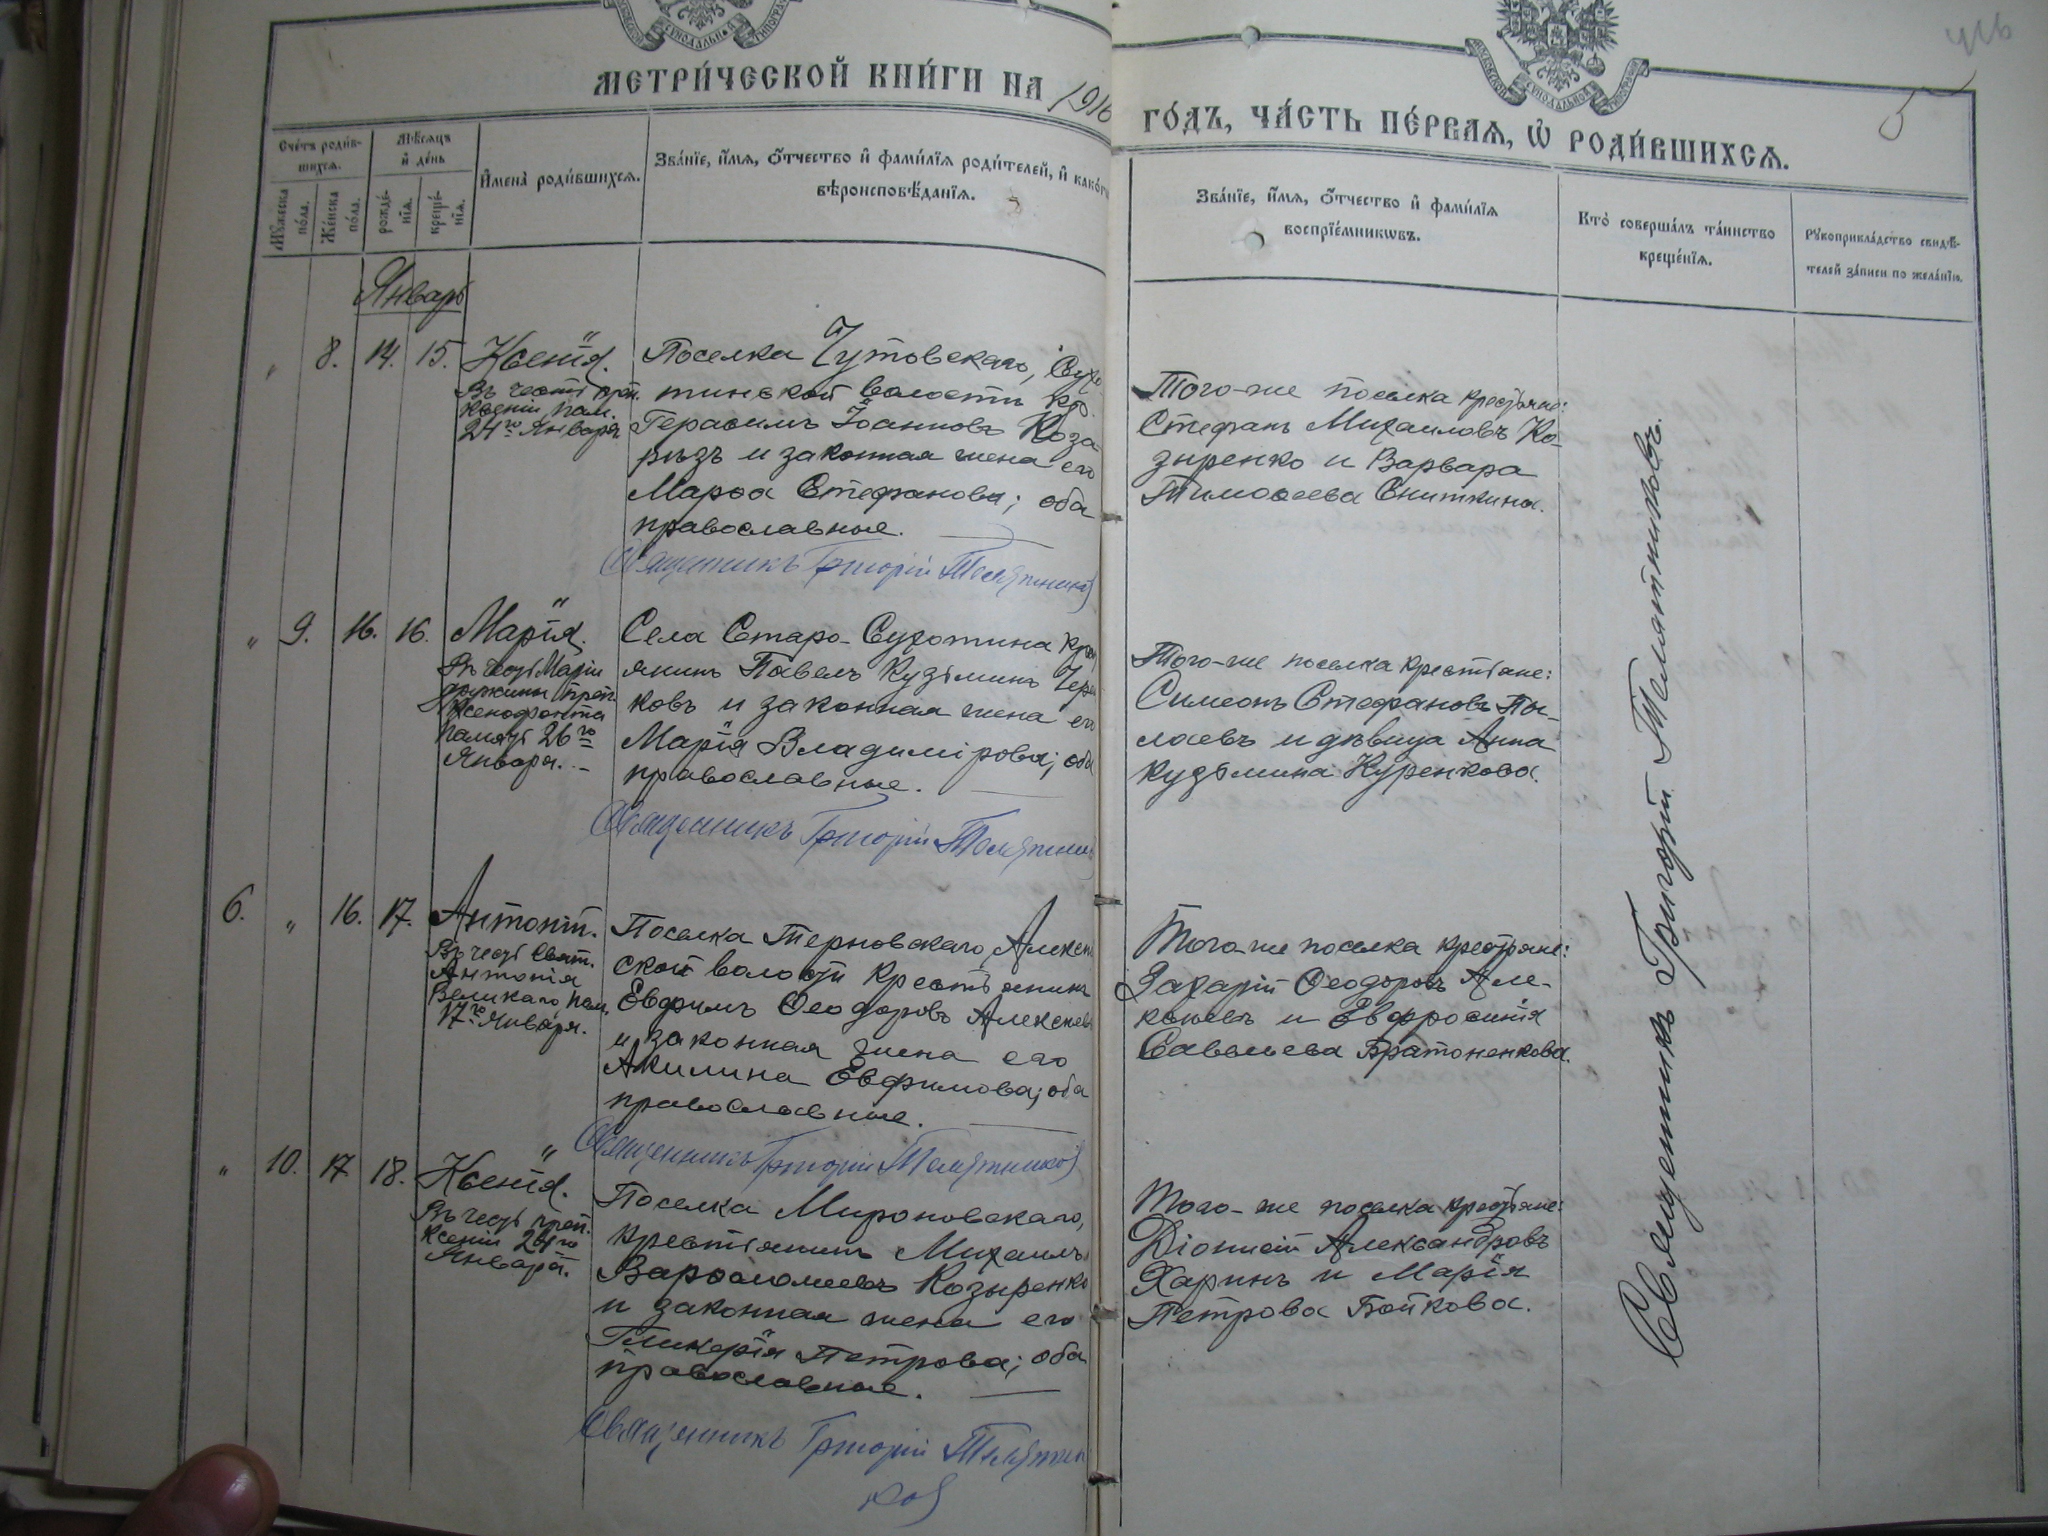 МЕТРИ́ЧЕСКОЙ КНИ́ГИ НА 1916
ГО́ДЪ, ЧА́СТЬ ПЕ́РВАѦ, Ѡ҆ РОДИ́ВШИХСѦ.
5
Сче́тъ роди́в-
шихсѧ.
Мꙋ́жеска
по́ла.
Же́нска
по́ла.
Мѣ́сѧцъ
и҆ де́нь
рожде́-
нїѧ.
креще́-
нїѧ.
И҆мена̀ роди́вшихсѧ.
Зва́нїе, и҆́мѧ, ѻ҆́тчество и҆ фами́лїѧ роди́телей, и҆ како́гѡ
вѣроисповѣ́данїѧ.
Зва́нїе, и҆́мѧ, ѻ҆́тчество и҆ фами́лїѧ
воспрїе́мникѡвъ.
Кто̀ соверша́лъ та́инство
креще́нїѧ.
Рꙋкоприкла́дство свидѣ́-
телей за́писи по жела́нїю.
Январь
" 8. 14. 15. Ксенія.
Въ честь прп.
Ксеніи, пам.
24го Января
Поселка Чутовскаго, Сухо-
тинской волости, кр.
Герасимъ Іоанновъ Коза-
рѣзъ и законная жена его
Марѳа Стефанова; оба
православные.
Священникъ Григорій Телятниковъ
Того-же поселка крестьяне:
Стефанъ Михаиловъ Ко-
зыренко и Варвара
Тимоѳеева Сниткина.
" 9. 16. 16. Марія.
Въ честь Маріи
дружины преп.
Ксенофонта
память 26го
Января.
Села Старо-Сухотина крест
янинъ Павелъ Кузьминъ
ковъ и законная жена его
Марія Владимірова; оба
православные.
Священникъ Григорій Телятник
Того-же поселка крестьяне:
Симеонъ Стефановъ
и дѣвица Анна
Кузьмина Куренкова.
6. " 16. 17. Антоній.
Въ честь Свят.
Антонія
Великаго, пам.
17го Января.
Поселка Терновскаго, Алексѣ
ской волости крестьянинъ
Евфимъ Ѳеодоровъ Алексѣевъ
и законная жена его
Акилина Евфимова; оба
православные.
Священникъ Григорій Телятниковъ
Того-же поселка крестьяне:
Захарій Ѳеодоровъ Але-
ксѣевъ и Евфросинія
Савельева Братоненкова.
" 10. 17. 18. Ксенія.
Въ честь преп.
Ксеніи 24го
Января.
Поселка Мироновскаго,
крестьянинъ Михаилъ
Варѳоломеевъ Козыренко
и законная жена его
Гликерія Петрова; оба
православные.
Священникъ Григорій Телятни
ковъ
Того-же поселка крестьяне:
Діонисій Александровъ
Харинъ и Марія
Петрова Бойкова.
Священникъ Григорій Телятниковъ.